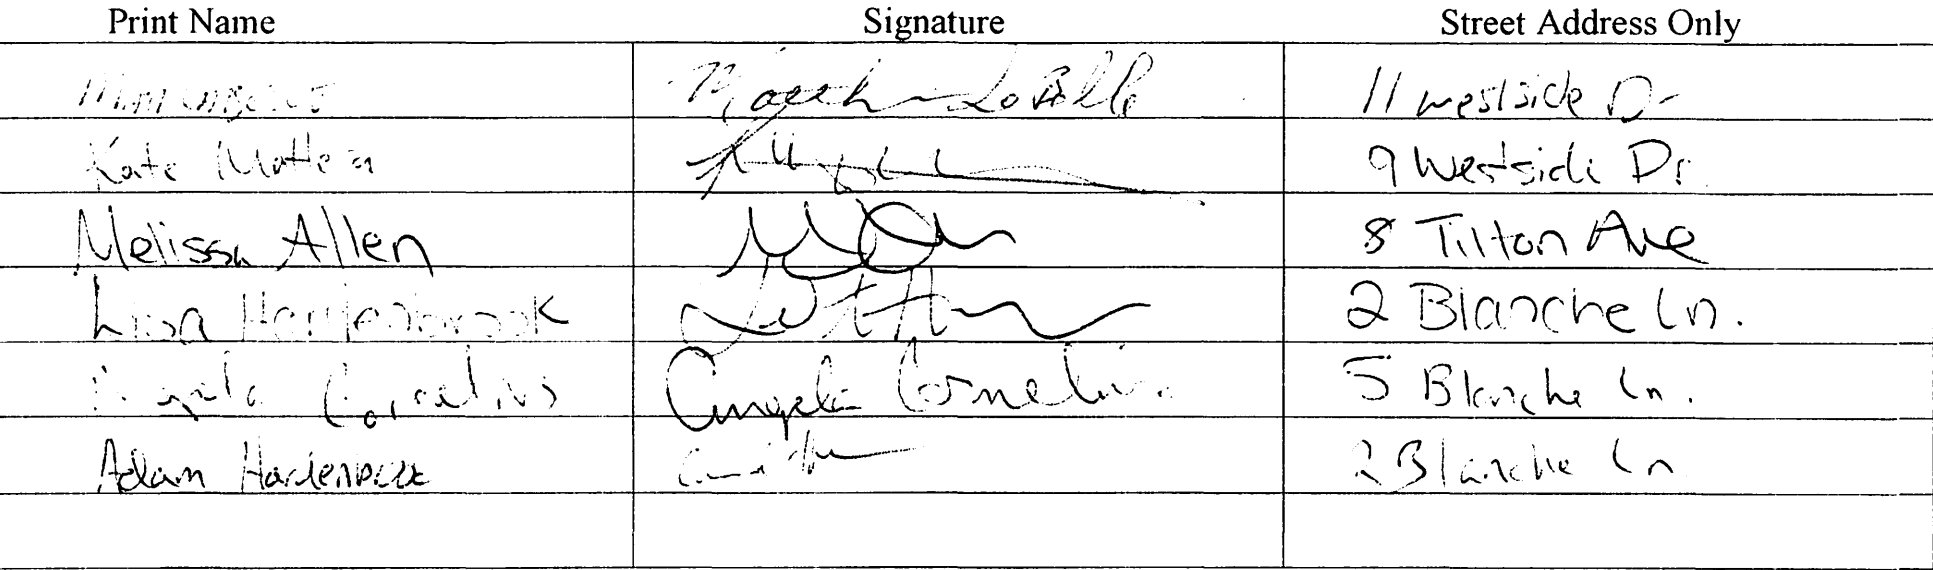 Print Name Signature Street Address Only
11 Westside Dr
Kate 9 Westside Dr.
Melissa Allen 8 Tilton Ave
Lisa Hardenbrook 2 Blanche Ln.
Angela Cornelius Angela Cornelius 5 Blanche Ln.
Adam Hardenbrook 2 Blanche Ln